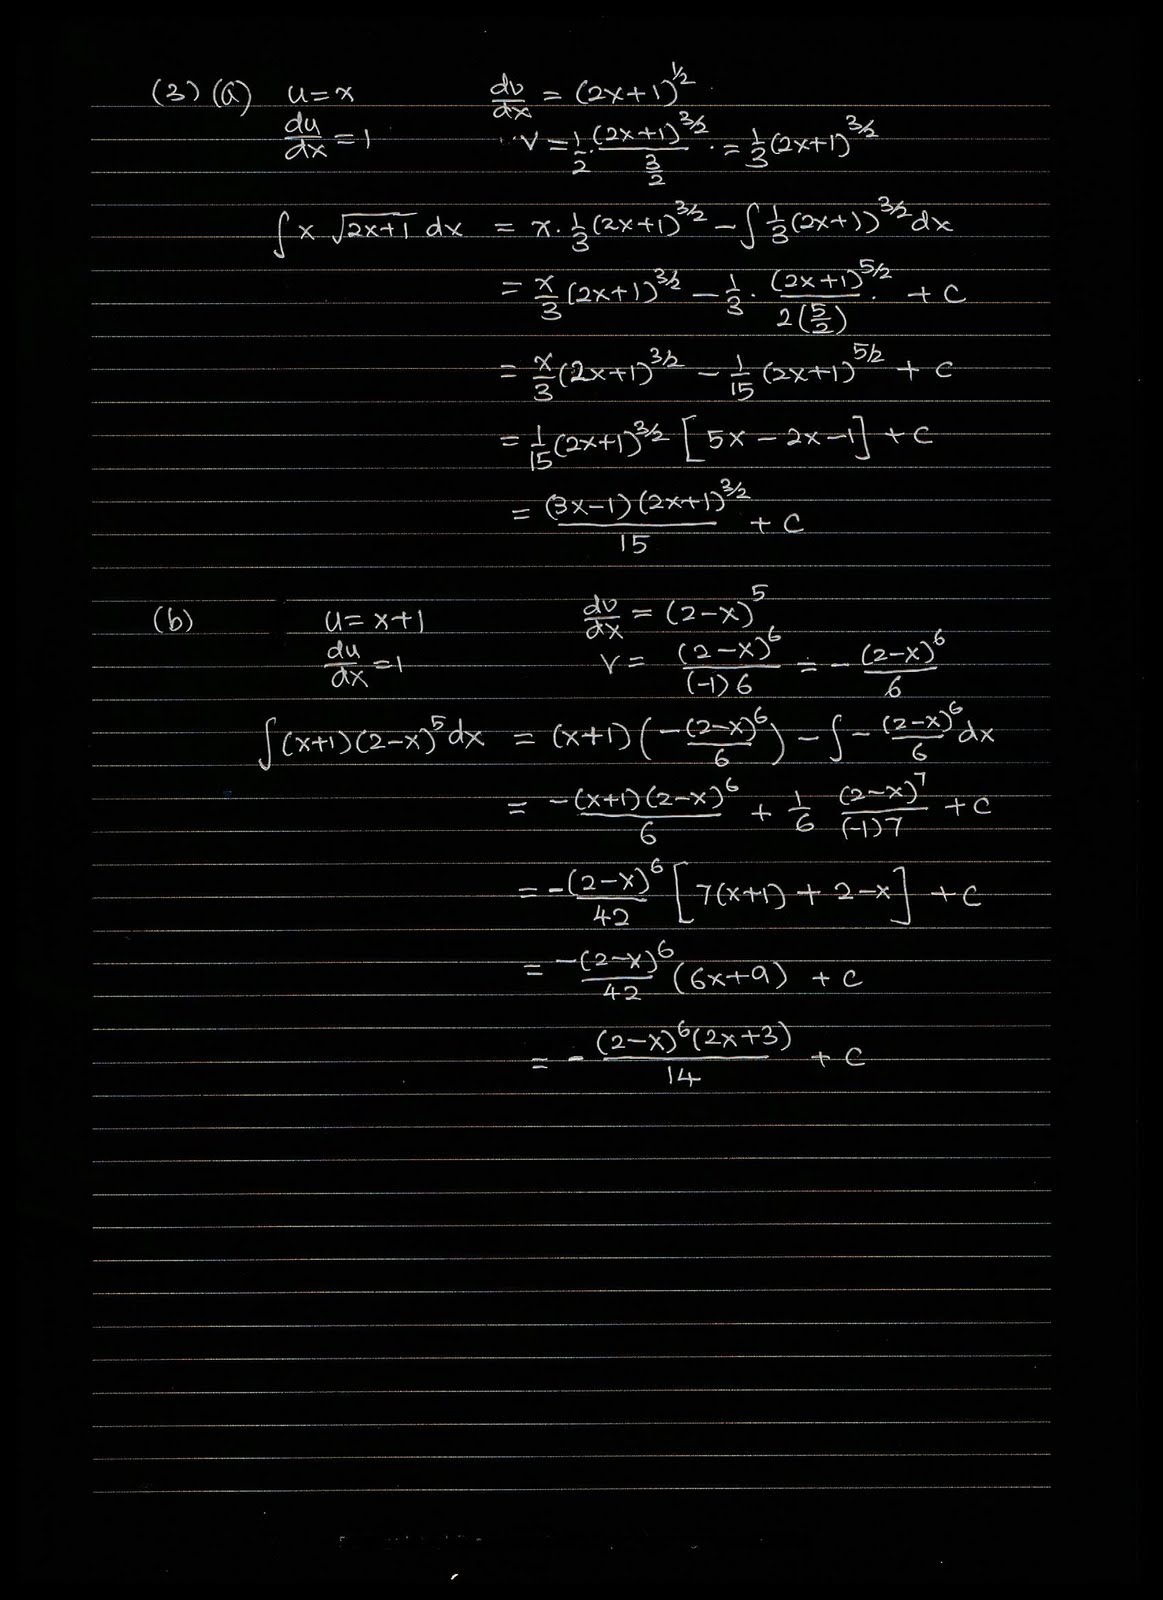 (3) (a) u = x dv/dx = (2x+1)^1/2
du/dx = 1 v = 1/2 · (2x+1)^3/2 / (3/2) · = 1/3 (2x+1)^3/2
∫ x √(2x+1) dx = x · 1/3 (2x+1)^3/2 − ∫ 1/3 (2x+1))^3/2 dx
= x/3 (2x+1)^3/2 − 1/3 · (2x+1)^5/2 / 2(5/2) · + C
= x/3 (2x+1)^3/2 − 1/15 (2x+1)^5/2 + C
= 1/15 (2x+1)^3/2 [5x − 2x − 1] + C
= (3x−1)(2x+1)^3/2 / 15 + C
(b) u = x+1 dv/dx = (2−x)^5
du/dx = 1 v = (2−x)^6 / (−1)6 = − (2−x)^6 / 6
∫ (x+1)(2−x)^5 dx = (x+1)(−(2−x)^6 / 6) − ∫ − (2−x)^6 / 6 dx
= −(x+1)(2−x)^6 / 6 + 1/6 (2−x)^7 / (−1)7 + C
= −(2−x)^6 / 42 [7(x+1) + 2−x] + C
= −(2−x)^6 / 42 (6x+9) + C
= − (2−x)^6 (2x+3) / 14 + C